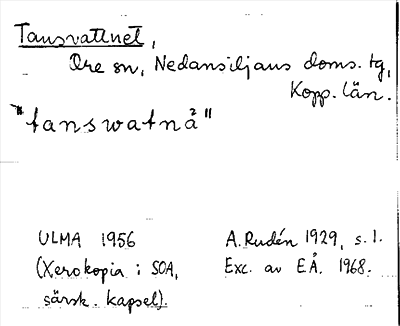 Tansvattnet,
Ore sn, Nedansiljans doms. tg,
Kopp. län.
"tanswatnå̀"
ULMA 1956
(Xerokopia i SOA,
särsk. kapsel).
A. Rudén 1929, s. 1.
Exc. av EÅ. 1968.